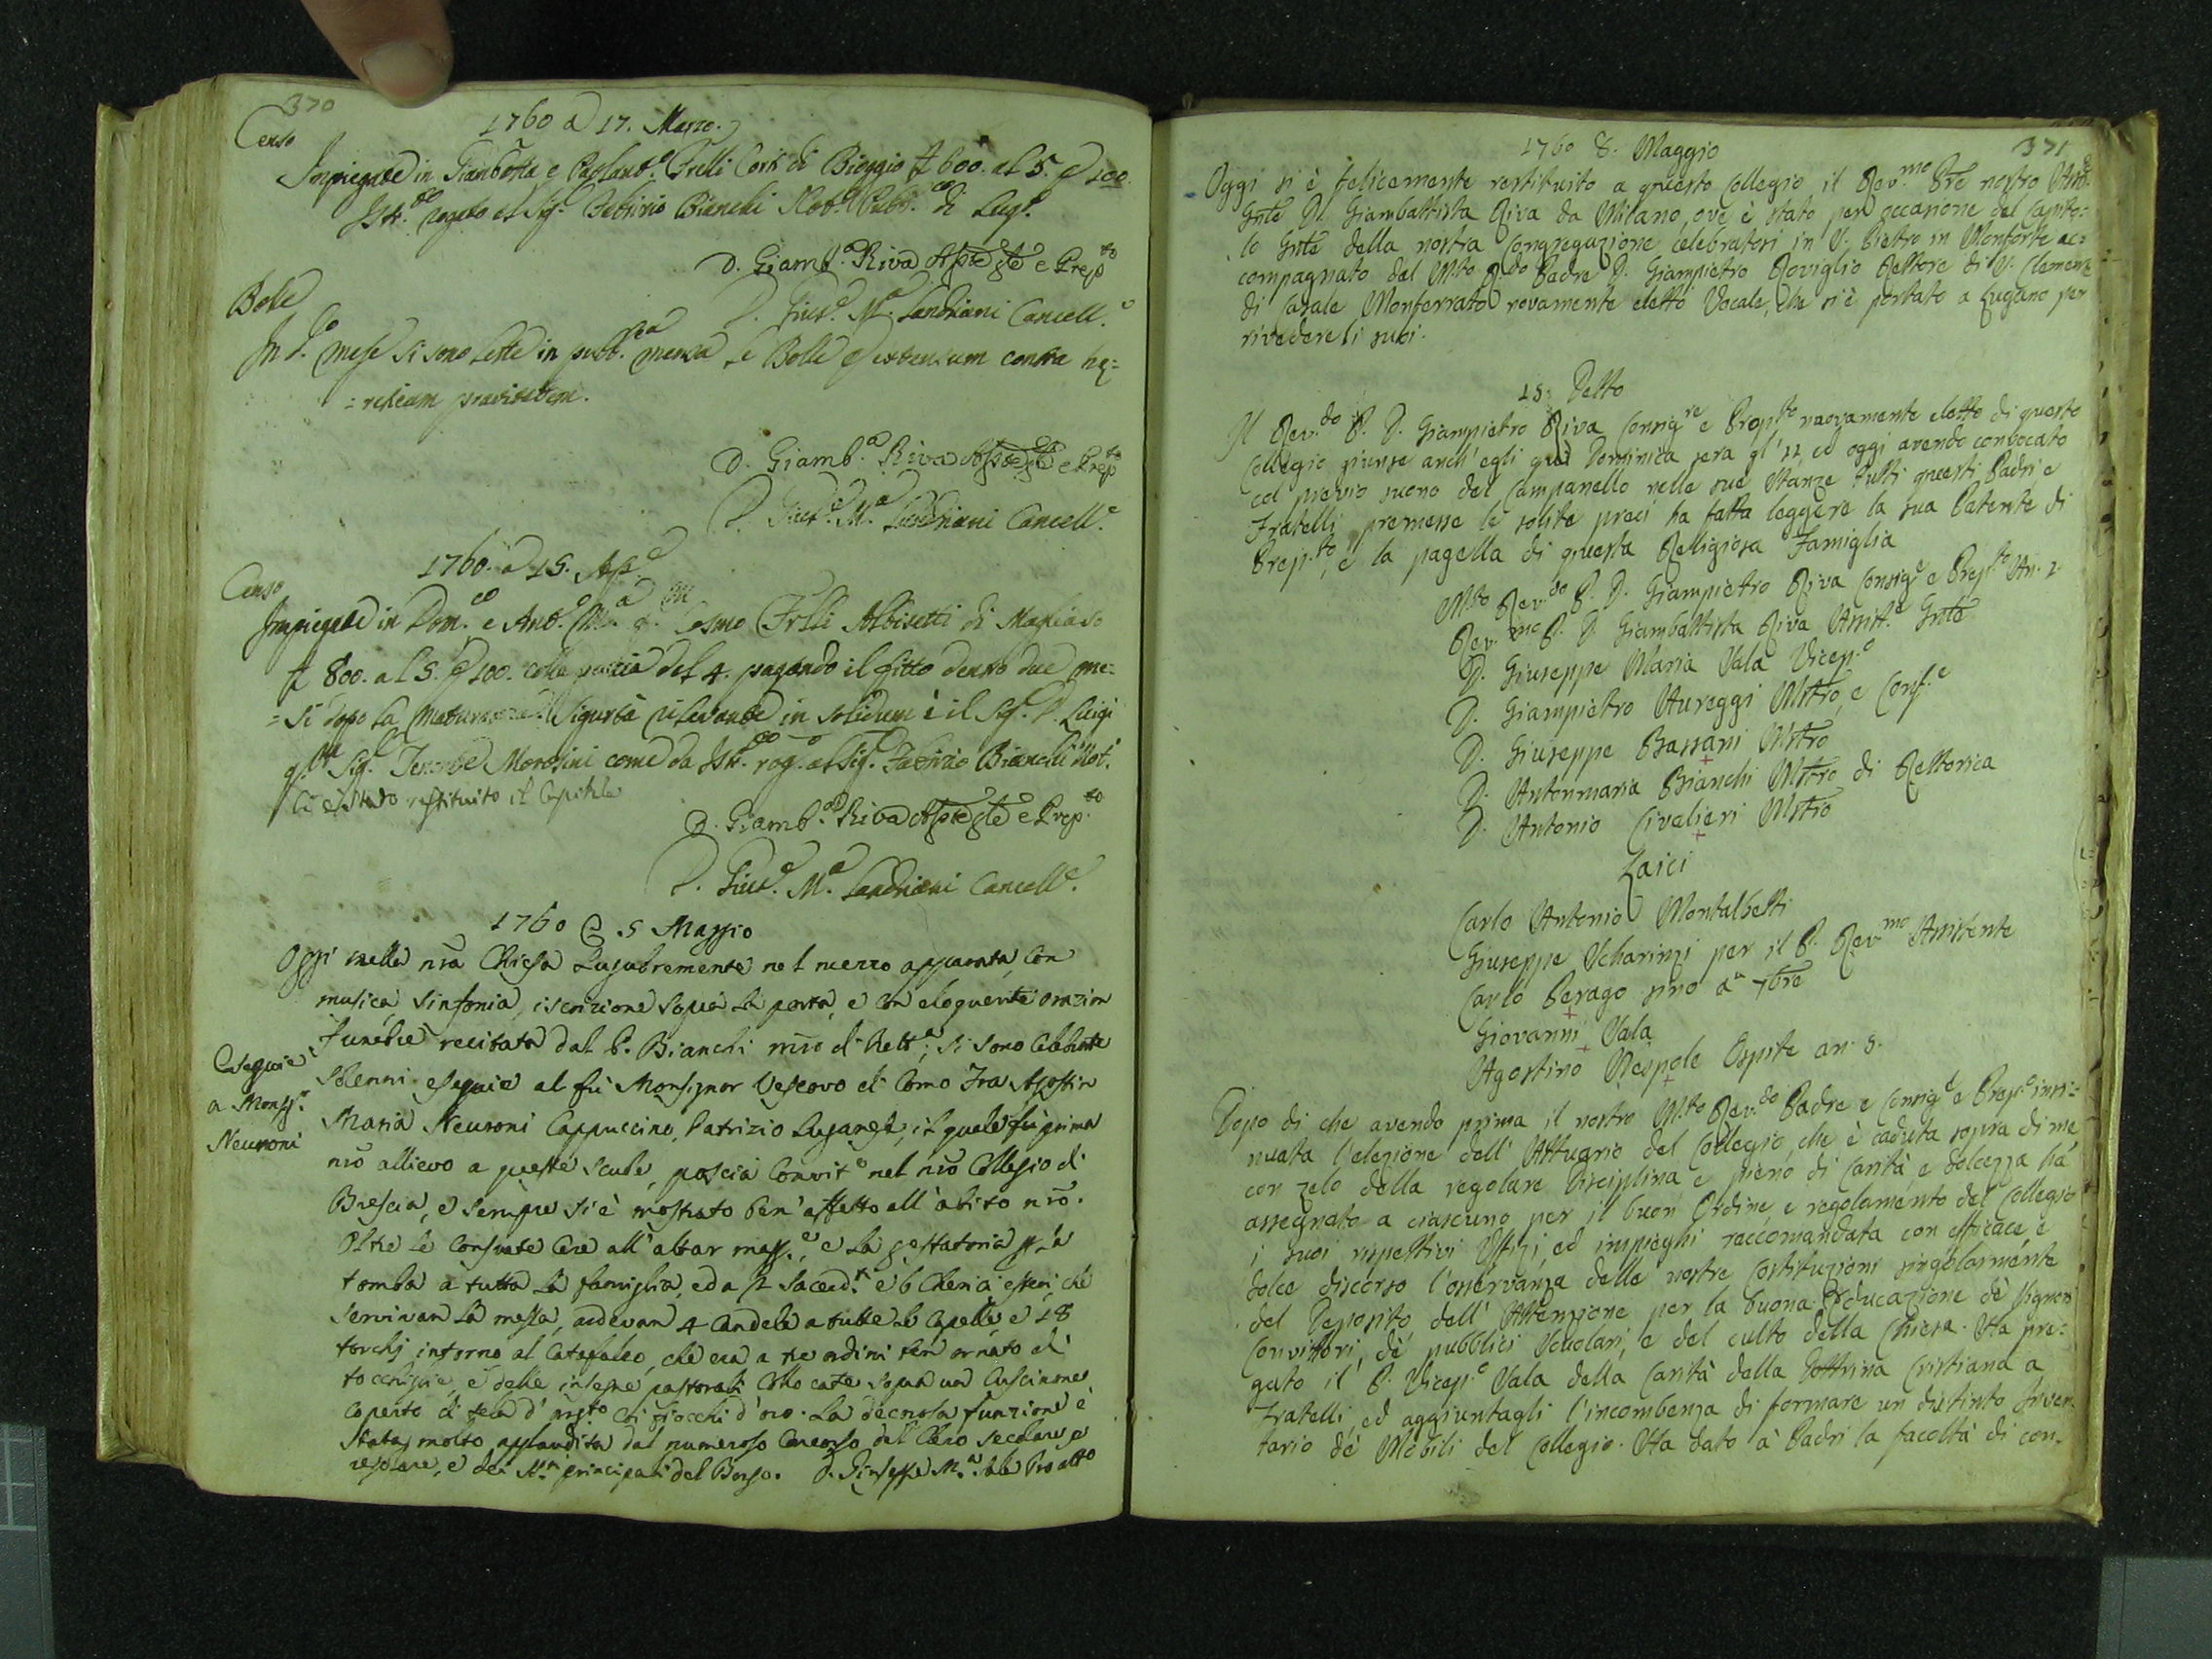 370
1760 a 17. Marzo.
Censo
Impiegate in Giambatta e Carlant.o Frelli Conti di Bioggio £ 600. al 5. p 100.
Istr.to rogato al Sig.r Fabrizio Bianchi Not.o Pubb.co di Lug.o
D. Giamb.a Riva Asste Gle e Prep.to
D. Gius.e M.a Landriani Cancell.e
Bolle
In d.o mese si sono lette in pubb.ca mensa le Bolle p extensum contra hæ=
=reticam pravitatem.
D. Giamb.a Riva Asste Gle e Prep.to
D. Gius.e M.a Landriani Cancell.e
1760. a 15. Ap.e
Censo
Impiegate in Dom.co e Ant.o M.a q. Cosmo Frlli Albisetti di Magliaso
£ 800. al 5. p 100. colla grazia del 4. pagando il fitto dentro due me=
=si dopo la maturanza. Sigurtà rilevante in solidum è il Sig.r D. Luigi
q.m Sig.r Morosini come da Istr.to rog.o al Sig.r Fabrizio Bianchi Not.o
Ci è stato restituito il Capitale
D. Giamb.a Riva Asste Gle e Prep.to
D. Gius.e M.a Landriani Cancell.e
1760 5 Maggio
Oggi nella nra Chiesa Lugubremente nel mezzo apparata, con
musica, sinfonia, iscrizione sopra la porta, e con eloquente orazion
funebre recitata dal P. Bianchi mro di Rett.a, si sono celebrate
Esequie
a Monsig.r
Neuroni
solenni esequie al fù Monsignor Vescovo di Como Fra Agostin
Maria Neuroni Cappuccino, Patrizio Luganese, il quale fù prima
nro allievo a queste scuole, poscia Convit.e nel nro Collegio di
Brescia, e sempre si è mostrato ben' affetto all' abito nro.
Oltre le consuete Cere all' altar magg.e, e la gestatoria p la
tomba a tutta la famiglia, ed a 12 Sacerd.ti e 6 Cherici esteri, che
servivan la messa, ardevan 4 Candele a tutte le Capelle, e 18
torchj intorno al Catafalco, che era a tre ordini ben ornato di
e delle insegne pastorali collocate sopra un Cuscinone
coperto di tela d' coi fiocchi d'oro. La decorosa funzione è
stata molto applaudita dal numeroso Concorso del Clero secolare e
regolare, e dei principali del Borgo. D. Giuseppe M.a Sala Pro att.o
371
1760 8. Maggio
Oggi si è felicemente restituito a questo Collegio il Rev.mo Pre nostro Assist.e
Gnle D. Giambattista Riva da Milano, ove è stato per occasione del Capito=
lo Gnle della nostra Congregazione celebratosi in S. Pietro in Monforte ac=
compagnato dal M.to R.do Padre D. Giampietro Roviglio Rettore di S. Clemente
di Casale Monferrato novamente eletto Vocale, che si è portato a Lugano per
rivedere li suoi.
15. Detto
Il Rev.do P. D. Giampietro Riva Consig.re e Prop.to nuovamente eletto di questo
Collegio giunse anch' egli quì Domenica sera gl' 11, ed oggi avendo convocato
col previo suono del Campanello nelle sue Stanze tutti questi Padri e
Fratelli, premesse le solite preci ha fatta leggere la sua Patente di
Prep.to, e la pagella di questa Religiosa Famiglia
M.to Rev.do P. D. Giampietro Riva Consig.e e Prep.to An. 2
Rev.mo P. D. Giambattista Riva Assist.e Gnle
D. Giuseppe Maria Sala Vicep.o
D. Giampietro Aureggi Mstro, e Conf.e
D. Giuseppe Bassani Mstro
D. Antonmaria Bianchi Mstro di Rettorica
D. Antonio Civalieri Mstro
Laici
Carlo Antonio Montalbetti
Giuseppe Scharinzi per il P. Rev.mo Assistente
Carlo Perago sino a 7bre
Giovanni Sala
Agostino Nespole Ospite an. 5.
Dopo di che avendo prima il nostro M.to Rev.do Padre e Consig.e e Prep.o insi=
nuata l'elezione dell' Attuario del Collegio, che è caduta sopra di me
con zelo della regolare Disciplina e pieno di Carità e dolcezza hà
assegnato a ciascuno per il buon Ordine e regolamento del Collegio
i suoi rispettivi Uffizj, ed impieghi raccomandata con efficace, e
dolce discorso l'osservanza delle nostre Costituzioni singolarmente
del Deposito dell' Attenzione per la buona Educazione dè Signori
Convittori, dè pubblici Scuolari, e del culto della Chiesa. Ha pre=
gato il P. Vicep.o Sala della Carità della Dottrina Cristiana a
Fratelli, ed aggiuntagli l'incombenza di formare un distinto Inven=
tario dè Mobili del Collegio. Ha dato à Padri la facoltà di con-